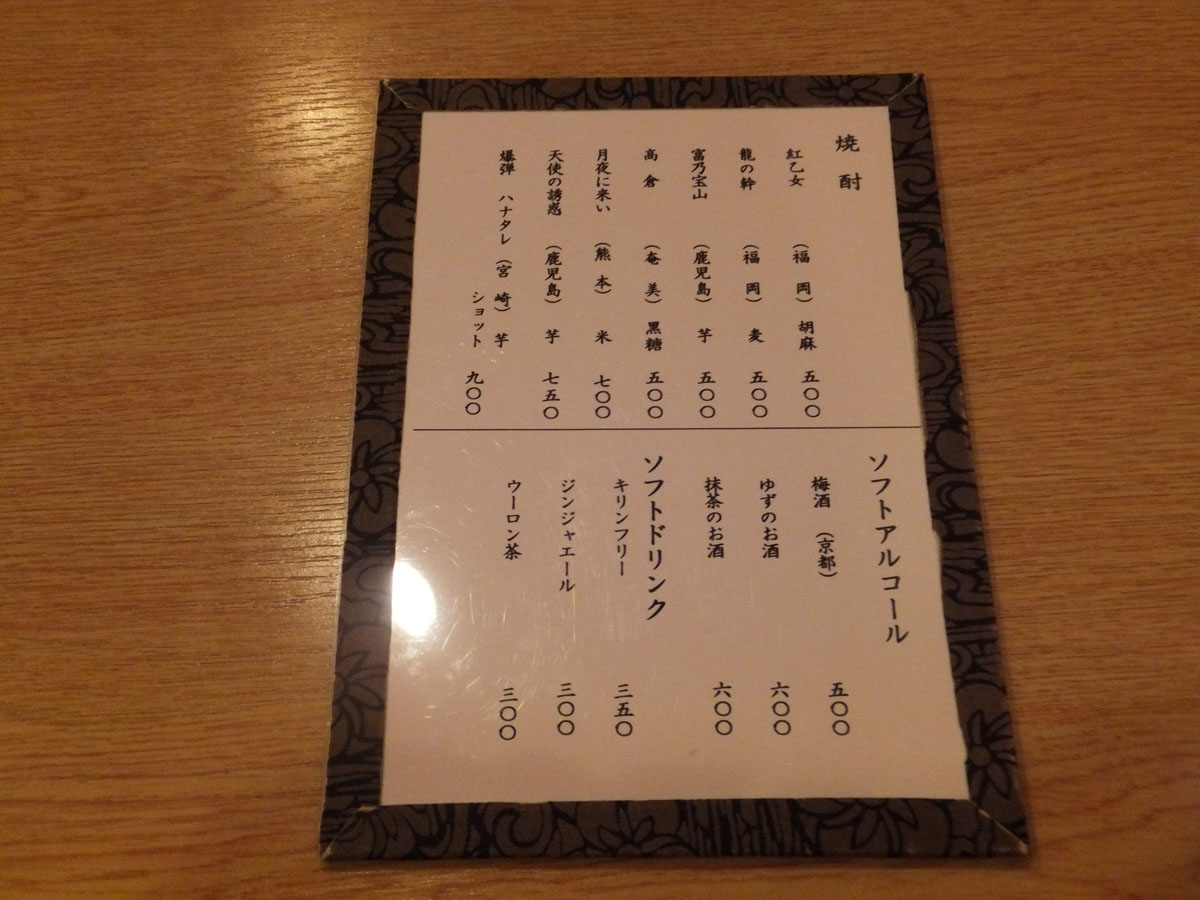 焼酎
紅乙女 （福岡） 胡麻 五〇〇
龍の幹 （福岡） 麦 五〇〇
富乃宝山 （鹿児島） 芋 五〇〇
高倉 （奄美） 黒糖 五〇〇
月夜に来い （熊本） 米 七〇〇
天使の誘惑 （鹿児島） 芋 七五〇
爆弾 ハナタレ （宮崎） 芋
ショット 九〇〇
ソフトアルコール
梅酒 （京都） 五〇〇
ゆずのお酒 六〇〇
抹茶のお酒 六〇〇
ソフトドリンク
キリンフリー 三五〇
ジンジャエール 三〇〇
ウーロン茶 三〇〇